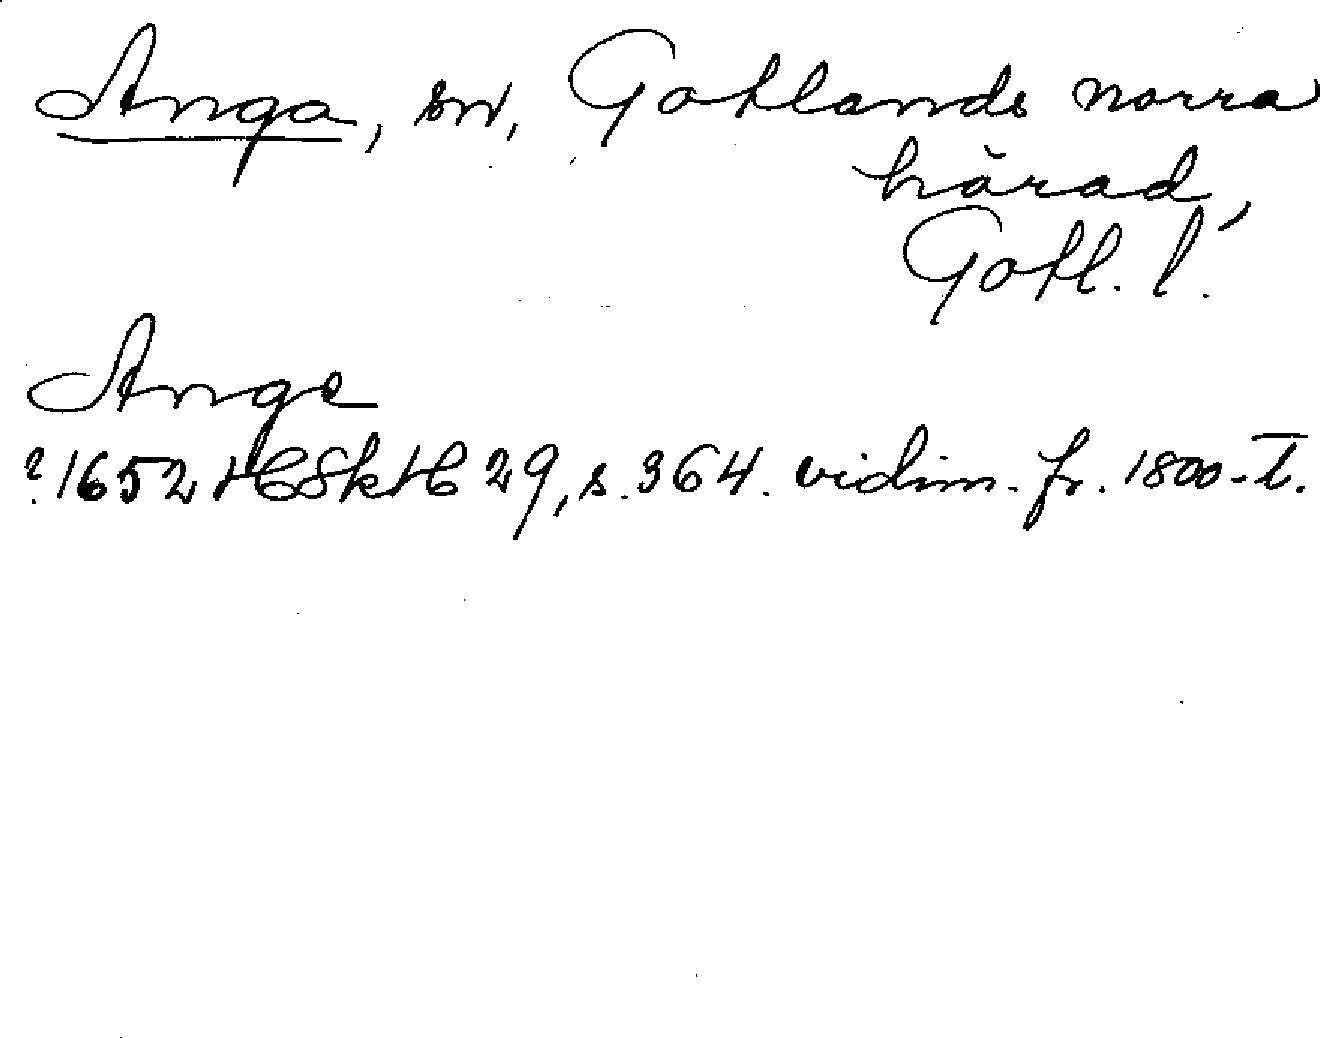 Anga, sn, Gotlands norra
härad,
Gotl. l.
Ange
?1652 HSkH 29, s. 364. vidim. fr. 1800-t.